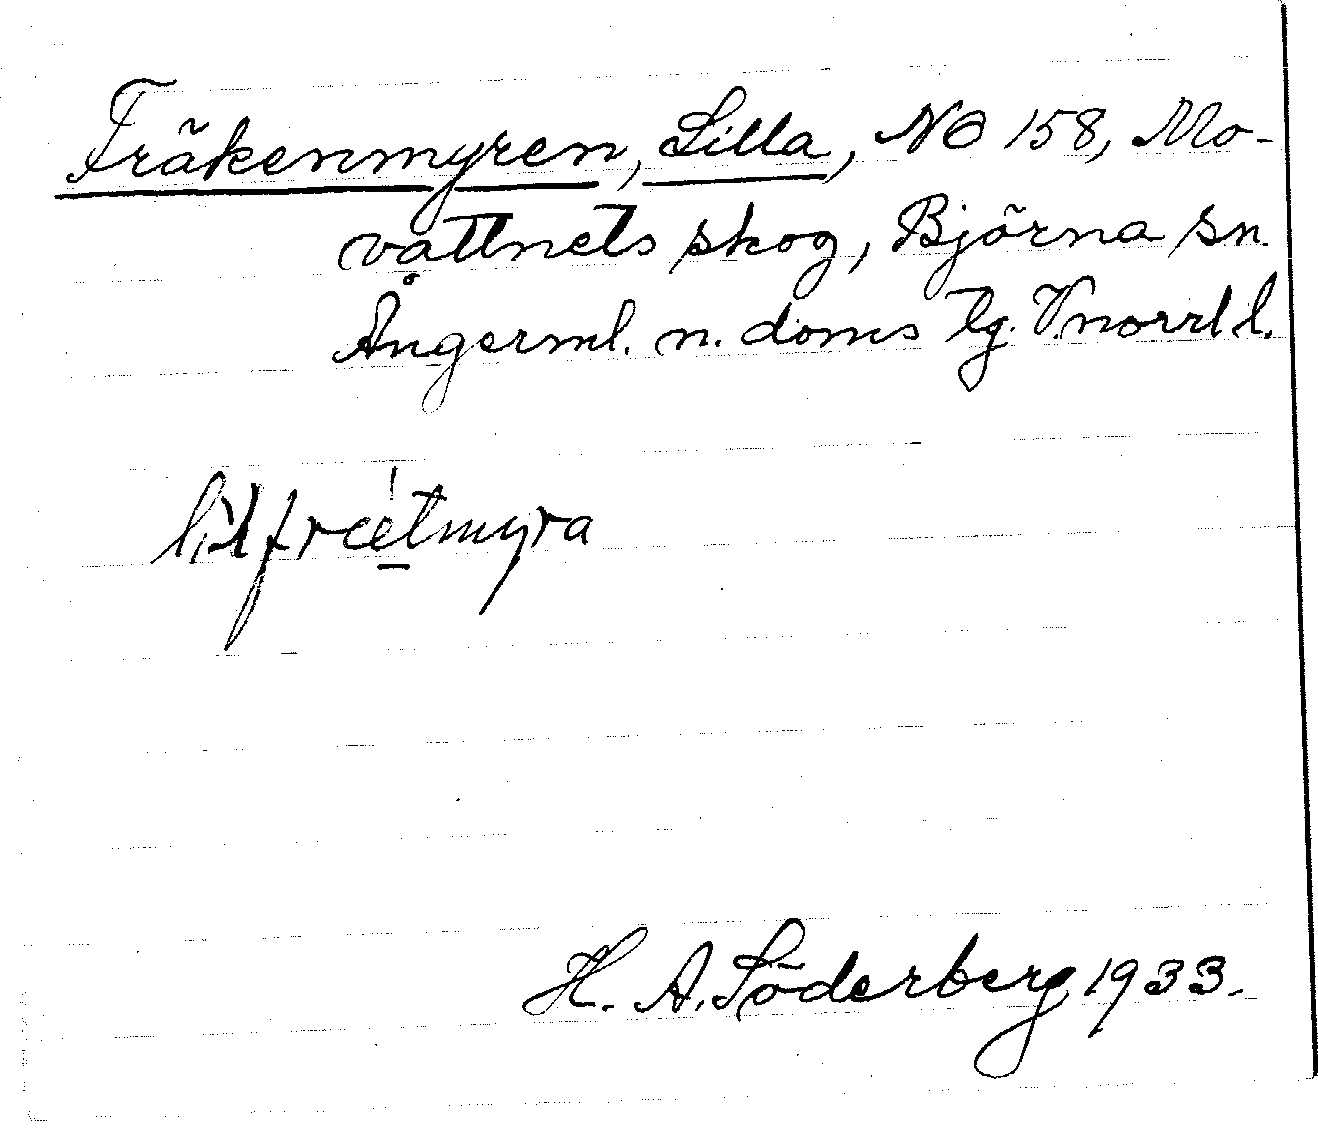 Fräkenmyren, Lilla, NO 158, Mo-
vattnets skog, Björna sn.
Ångerml. n. doms tg. Vnorrl l.
H. A. Söderberg 1933.